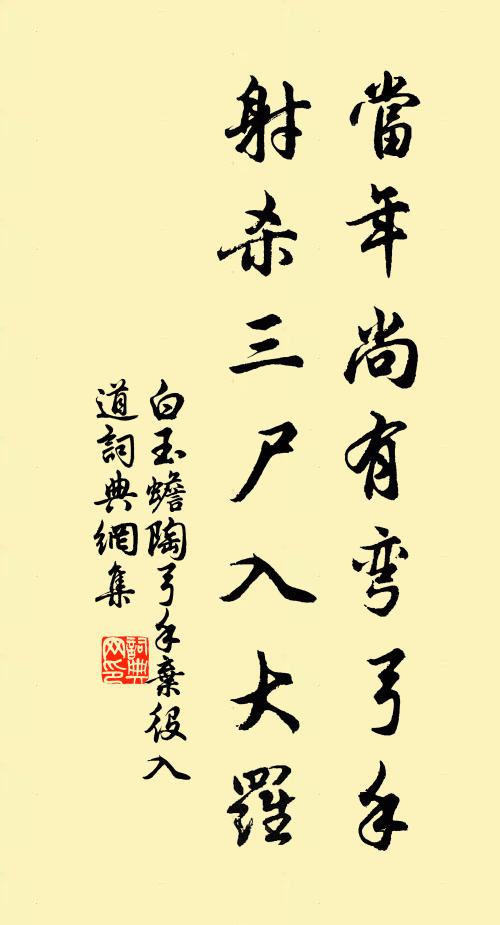 當年尚有弯弓手
射杀三尸入大羅
白玉蟾陶弓手棄役入
道詞典網集
詞典
网印